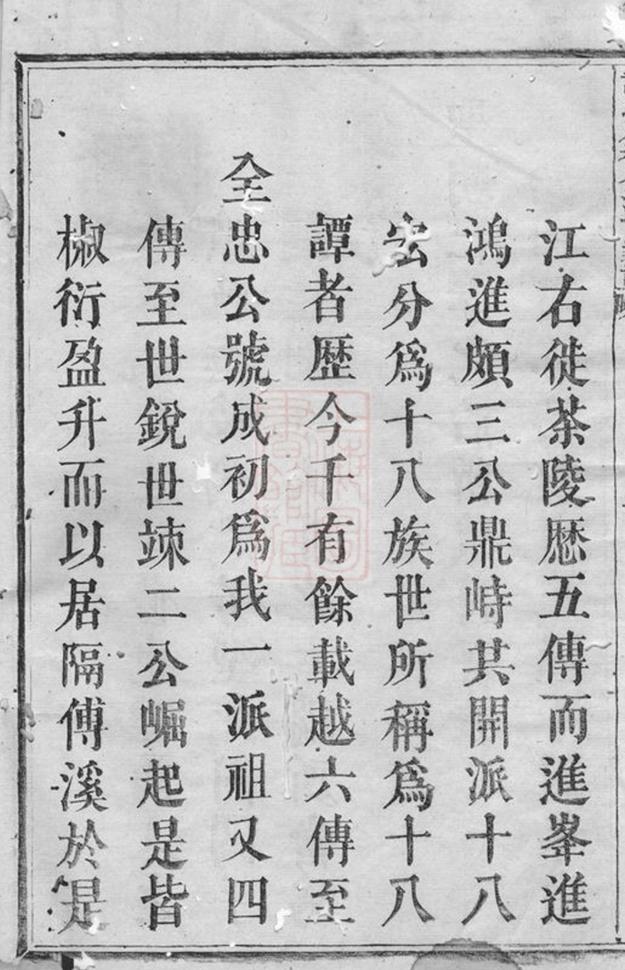 江右徙茶陵歴五傳而進峯進
鴻進頗三公鼎峙共開派十八
宏分爲十八族世所稱爲十八
譚者歴今千有餘載越六傳至
全忠公號成初爲我一派祖又四
傳至世銳世竦二公崛起是皆
椒衍盈升而以居隔傅溪於是